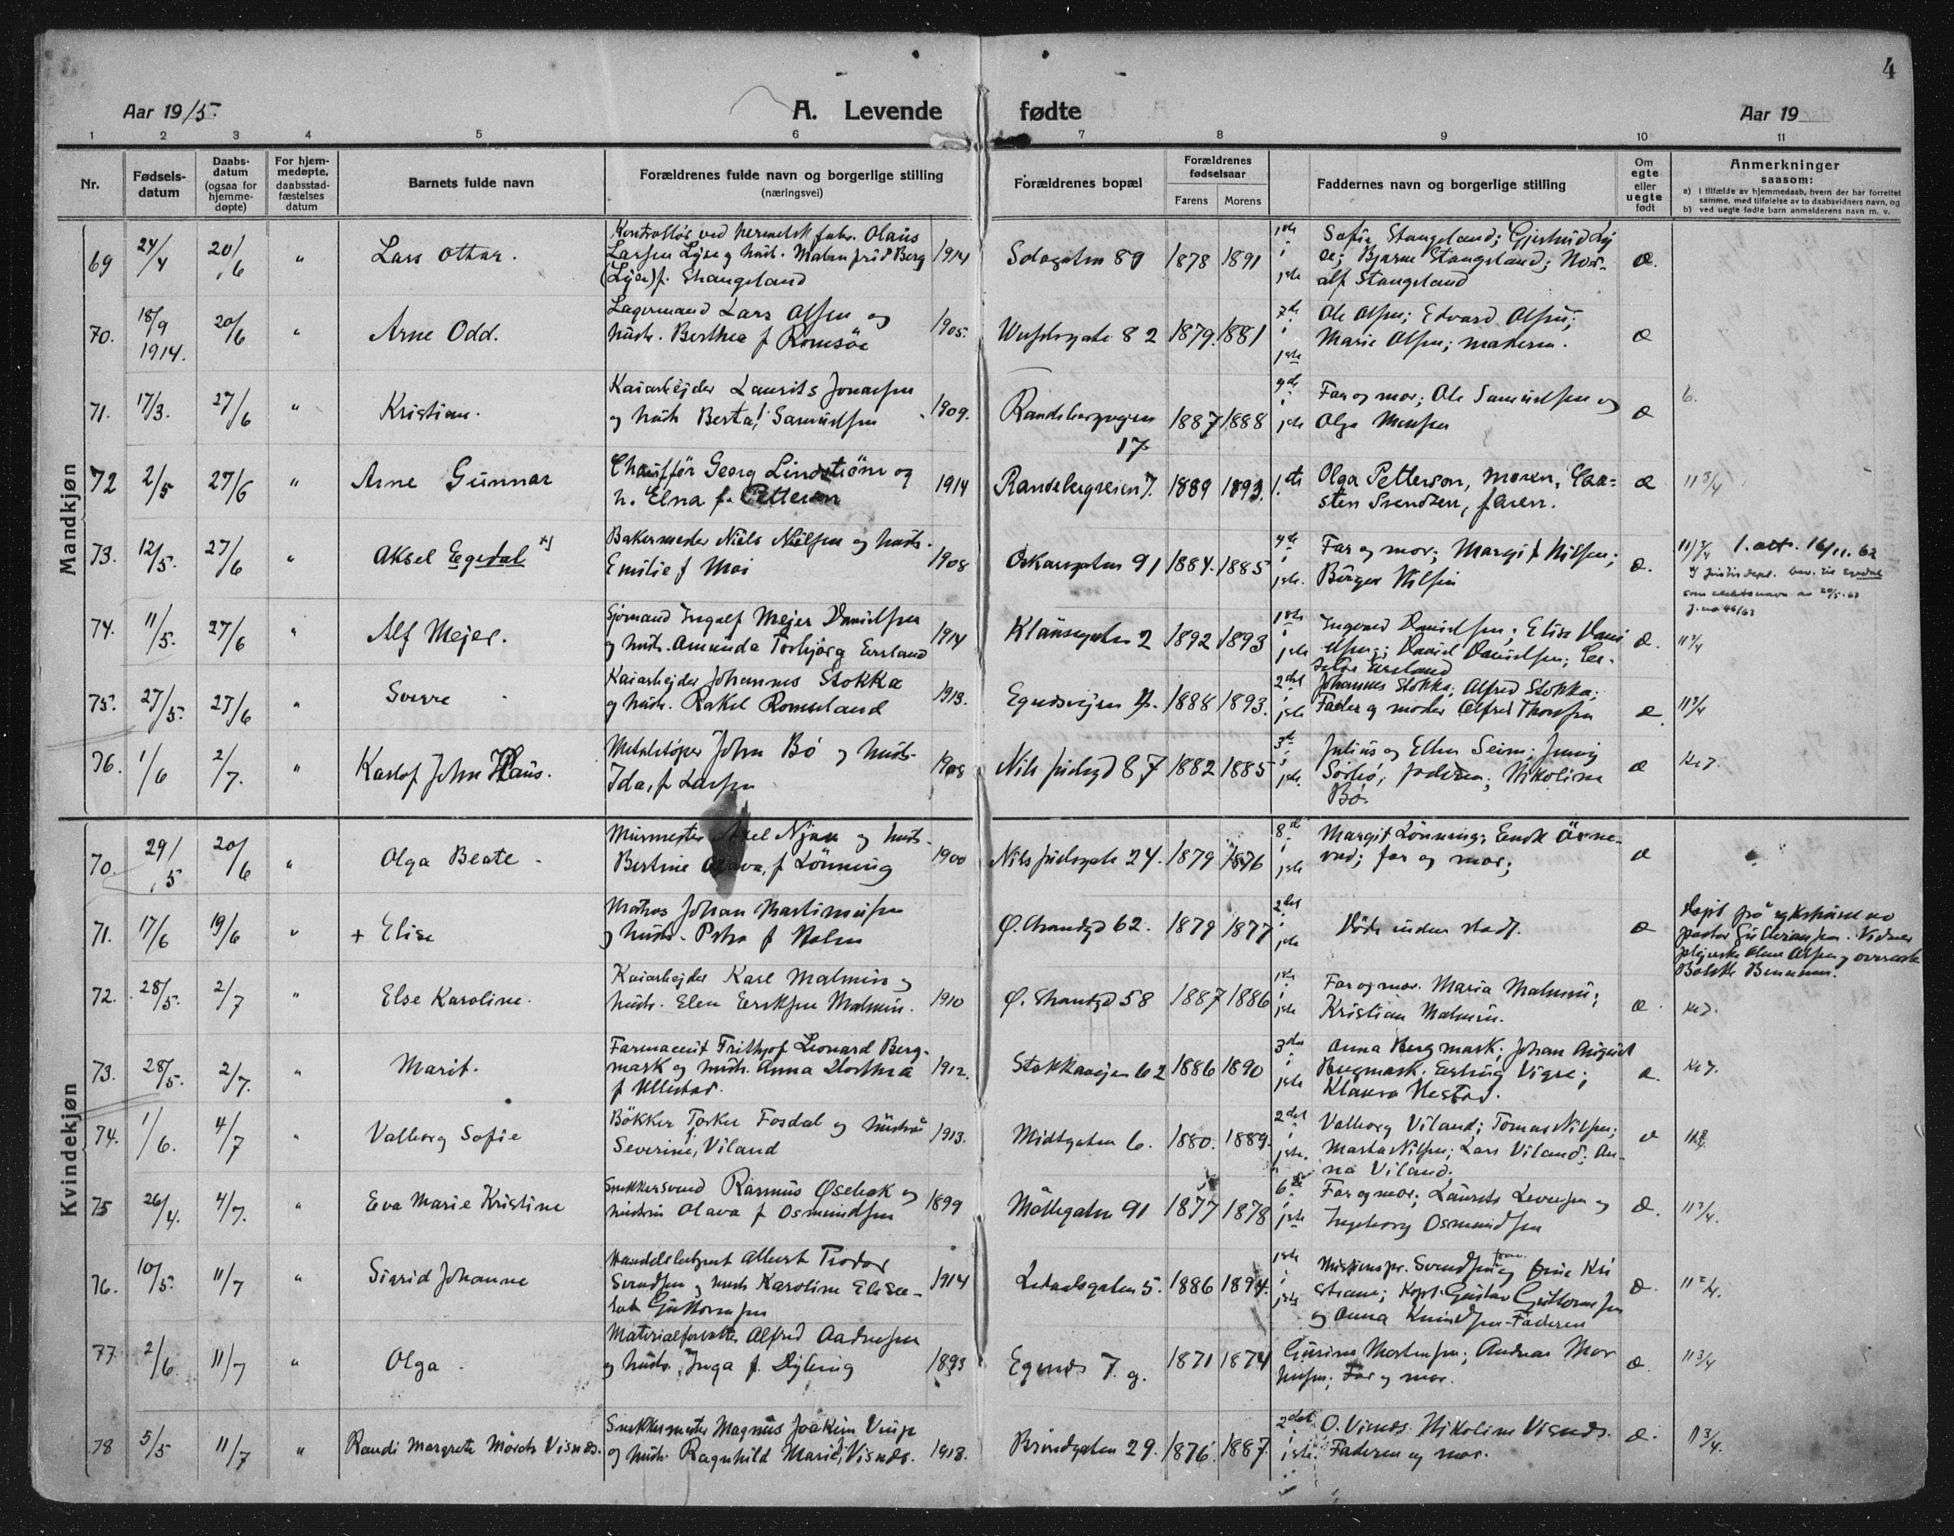 4
Aar 1915. A. Levende fødte Aar 19
1 2 3 4 5 6 7 8 9 10 11
Nr.
Fødsels-
datum
Daabs-
datum
(ogsaa for
hjemme-
døpte)
For hjem-
medøpte,
daabsstad-
fæstelses
datum
Barnets fulde navn
Forældrenes fulde navn og borgerlige stilling
(næringsvei)
Forældrenes bopæl
Forældrenes
fødselsaar
Farens Morens
Faddernes navn og borgerlige stilling
Om
egte
eller
uegte
født
Anmerkninger
saasom:
a) i tilfælde av hjemmedaab, hvem der har forrettet
samme, med tilføielse av to daabsvidners navn, og
b) ved uegte fødte barn anmelderens navn m. v.
Mandkjøn
69 24/4 20/6 " Lars Ottar.
Kontrollør ved hermetikfabr. Olaus
Larsen Lyse og hustr. Malenfrid Berg
(Lyse) f. Stangeland
1914 Solagaten 89 1878 1891
Sofie Stangeland; Gjertrud Ly
se; Bjarne Stangeland; Nor-
alf Stangeland
æ.
70. 18/9 1914. 20/6 " Arne Odd.
Lagermand Lars Olsen og
hustr. Berthea f Romsöe
1905. 82 1879. 1881
Ole Olsen; Edvard Olsen;
Marie Olsen; moderen.
æ
71. 17/3. 27/6 " Kristian.
Kaiarbejder Laurits Jonassen
og hustr Berta f. Samuelsen
1909. Randebergvejen
17. 1887 1888
Far og mor; Ole Samuelsen og
Olga Monsen
æ 6.
72 2/5 27/6 " Arne Gunnar
Chauffør Georg Lindstrøm og
h. Elna f. Petterson
1914 Randebergveien 7. 1889 1893. 1ste
Olga Petterson, moren, Car-
sten Svendsen, faren.
æ 11 3/4
73. 12/5. 27/6 " Aksel Egedal x)
Bakermester Niels Nielsen og hustr.
Emilie f Moi
1908 Oskarsgaten 91 1884. 1885
Far og mor; Margit Nilsen;
Börger Nilsen
æ. 1. att. 16/11. 62
74. 11/5. 27/6 " Alf Mejer.
Sjömand Ingolf Mejer Danielsen
og hustr. Amunda Torbjörg Eersland
1914 Klausegaten 2 1892 1893
Ingvard Danielsen; Elise Dani
elsen; David Danielsen;
æ. 11 3/4
75. 27/5. 27/6 " Sverre
Kaiarbejder Johannes Stokka
og hustr. Rakel Romseland
1913. 1888 1893.
Johannes Stokka; Alfred Stokka;
Fader og moder Alfred Thorsen
æ. 11 3/4
76. 1/6 2/7. " Karlof John Klaus.
Metalstøper John Bö og hustr.
Ida, f Larsen
1908 Nils Juelsgd 87 1882 1885
Julius og Ellen Seim; Jenny
Sørbö; faderen; Nikoline
Bö.
æ
Kvindekjøn
70. 29/5 20/6 " Olga Beate.
Murmester Axel Njaa og hustr.
Bertine Olava, f Lönning
1900 Nils Juelsgate 24. 1879 1876
Margit Lönning;
far og mor;
æ
71. 17/6 19/6 " + Elise
Matros Johan Martinusen
og hustr. Petra f Holm
1879 1877
Ø. Strandgd 62.
Död; inden stadf.
æ
72. 28/5. 2/7 " Else Karoline.
Kaiarbejder Karl Malmin og
hustr. Elen Eriksen Malmin.
1910 Ø. Strandgd 58 1887 1886
Far og mor. Maria Malmin;
Kristian Malmin.
æ.
73. 28/5. 2/7. " Marit.
Farmaceut Frithjof Leonard Berg-
mark og hustr. Anna Dorthea
f Ullestad.
1912. Stokkavejen 62 1886 1890
Anna Bergmark; Johan August
Bergmark. Erling Vigre;
Klara Nestad.
æ.
74. 1/6. 4/7 " Valborg Sofie
Bökker Torker Fosdal og hustru
Severine f. Viland
1913. Midtgaten 6. 1880. 1889.
Valborg Viland; Tomas Nilsen;
Marta Nilsen; Lars Viland; An-
na Viland;
æ
75 26/4. 4/7. " Eva Marie Kristine
Snekkersvend Rasmus Øsebak og
hustru Olava f Osmundsen
1899 Möllegaten 91 1877 1878
Far og mor; Laurits Levensen og
Ingeborg Osmundsen
æ. 11 3/4.
76. 10/5. 11/7 " Sigrid Johanne
Handelsbetjent Albert Teodor
Svendsen og hustr Karoline Elisa-
bet Guttormsen
1914 Ledaalsgaten 5. 1886 1894.
Misjonspr. Svendsen og frue Kri
stiane; Kapt. Gustav Guttormsen
og Anna Knudsen. Faderen
æ.
77. 2/6. 11/7 " Olga.
Materialforvalter Alfred Aadnesen
og hustr. Inga f. Dybing
1893 Egenes 7. g. 1871 1874
Gurine Mortensen; Andreas Mor
tensen; Far og mor.
æ. 11 3/4
78 5/5 11/7 " Randi Margrete Visnes.
Snekkermester Magnus Joakim
og hustr. Ragnhild Marie f. Visnes.
1913. Brendgaten 29. 1876. 1887.
O. Visnes. Nikoline Visnes.
Faderen og mor.
æ. 11 3/4.